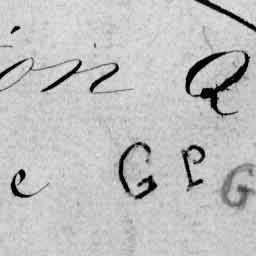 ion Q
e G P G